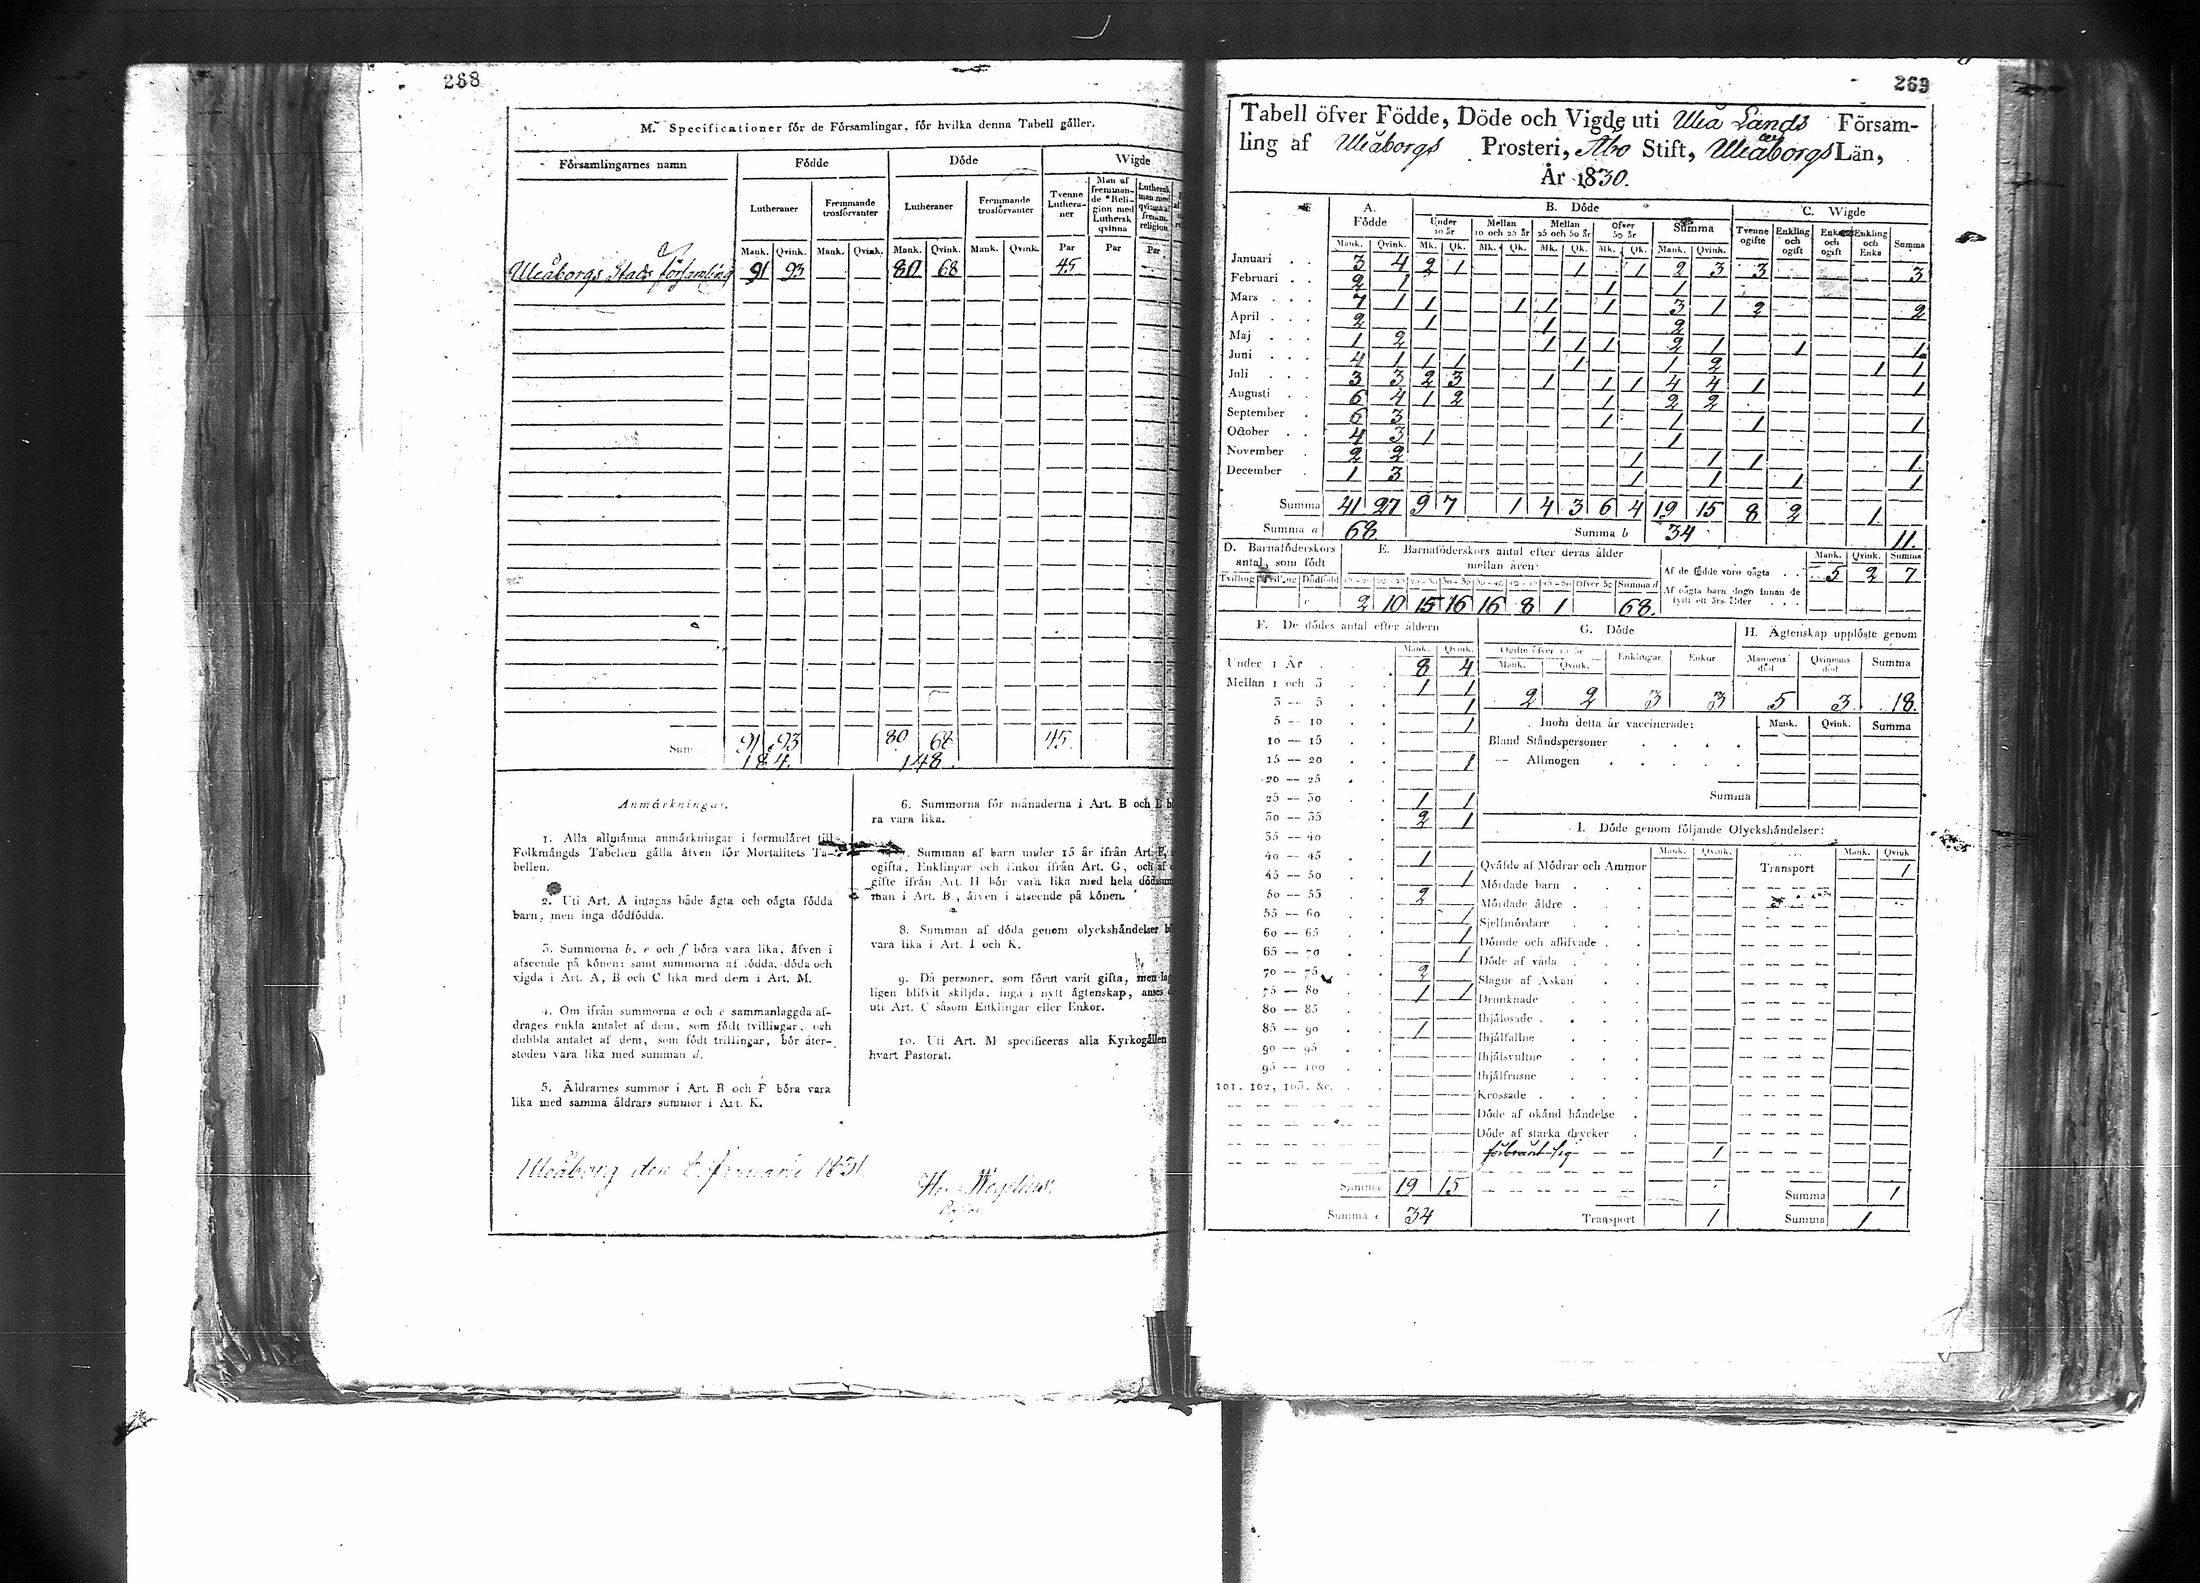 268
M. Specificationer för de Församlingar, för hvilka denna Tabell gäller.
Församlingarnes namn
Födde
Döde
Wigde
Lutheraner
Fremmande trosförvanter
Lutheraner
Fremmande trosförvanter
Tvenne Lutheraner
Man af fremmande Religion med Luthersk qvinna
Luthersk man med qvinna af fremm. religion
Mank. Qvink. Mank. Qvink. Mank. Qvink. Mank. Qvink. Par Par Par
Uleåborgs Stads församling 91 93 80 68 45
91 93 80 68 45
184. 148.
Anmärkningar.
1. Alla allmänna anmärkningar i formuläret till
Folkmängds Tabellen gälla äfven för Mortalitets Ta-
bellen.
2. Uti Art. A intagas både ägta och oägta födda
barn, men inga dödfödda.
3. Summorna b, e och f böra vara lika, äfven i
afseende på könen: samt summorna af födda, döda och
vigda i Art. A, B och C lika med dem i Art. M.
4. Om ifrån summorna a och c sammanlaggda af-
drages enkla antalet af dem, som födt tvillingar, och
dubbla antalet af dem, som födt trillingar, bör åter-
stoden vara lika med summan d.
5. Äldrarnes summor i Art. B och F böra vara
lika med samma äldrars summor i Art. K.
6. Summorna för månaderna i Art. B och
ra vara lika.
Summan af barn under 15 år ifrån Art. F,
ogifta, Enklingar och Enkor ifrån Art. G, och af
gifte ifrån Art. H bör vara lika med hela dödssum
man i Art. B, äfven i afseende på könen.
8. Summan af döda genom olyckshändelser
vara lika i Art. I och K.
9. Då personer, som förut varit gifta, men lag
ligen blifvit skiljda, ingå i nytt ägtenskap,
uti Art. C såsom Enklingar eller Enkor.
10. Uti Art. M specificeras alla Kyrkogällen
hvart Pastorat.
Uleåborg den 8. Januarii 1831.
Wegelius.
269
Tabell öfver Födde, Döde och Vigde uti Uleå Lands Försam-
ling af Uleåborgs Prosteri, Åbo Stift, Uleåborgs Län,
År 1830.
A. Födde
B. Döde
C. Wigde
Under 10 år
Mellan 10 och 25 år
Mellan 25 och 50 år
Öfver 50 år
Summa
Tvenne ogifte
Enkling och ogift
Enka och ogift
Enkling och Enka
Summa
Mank. Qvink. Mk. Qk. Mk. Qk. Mk. Qk. Mk. Qk. Mank. Qvink.
Januari 3 4 2 1 1 1 2 3 3 3
Februari 2 1 1 1
Mars 7 1 1 1 1 1 3 1 2 2
April 2 1 1 2
Maj 1 2 1 1 1 2 1 1 1
Juni 4 1 1 1 1 1 2 1 1
Juli 3 3 2 3 1 1 1 4 4 1 1
Augusti 6 4 1 2 1 2 2
September 6 3 1 1 1 1
October 4 3 1 1
November 2 2 1 1 1 1
December 1 3 1 1 1 1
Summa 41 27 9 7 1 4 3 6 4 19 15 8 2 1
Summa a 68 Summa b 34 11.
D. Barnaföderskors antal, som födt
E. Barnaföderskors antal efter deras ålder mellan åren:
Mank. Qvink. Summa
Tvilling Trilling Dödfödd
Öfver 50 Summa d
Af de födde voro oägta 5 2 7
Af oägta barn dogo innan de fyllt ett års ålder
2 10 15 16 16 8 1 68.
F. De dödes antal efter åldern
Mank. Qvink.
Under 1 År 8 4
Mellan 1 och 3 1 1
3 — 5 1
5 — 10 1
10 — 15
15 — 20 1
20 — 25
25 — 30 1 1
30 — 35 2 1
35 — 40
40 — 45 1
45 — 50 1
50 — 55 2
55 — 60 1
60 — 65 1
65 — 70 1
70 — 75 2
75 — 80 1 1
80 — 85
85 — 90 1
90 — 95
95 — 100
101, 102, 103, &c.
Summa 19 15
Summa e 34
G. Döde
Ogifte öfver 15 år
Mank. Qvink. Enklingar Enkor
2 2 3 3
H. Ägtenskap upplöste genom
Mannens död Qvinnans död Summa
5 3 18.
Inom detta år vaccinerade: Mank. Qvink. Summa
Bland Ståndspersoner
— Allmogen
Summa
I. Döde genom följande Olyckshändelser:
Mank. Qvink. Mank. Qvink
Qväfde af Mödrar och Ammor Transport 1
Mördade barn
Mördade äldre
Sjelfmördare
Dömde och aflifvade
Döde af våda
Slagne af Åskan
Drunknade
Ihjälosade
Ihjälfallne
Ihjälsvultne
Ihjälfrusne
Krossade
Döde af okänd händelse
Döde af starka drycker
förbränt sig 1
Summa 1
Transport 1 Summa 1